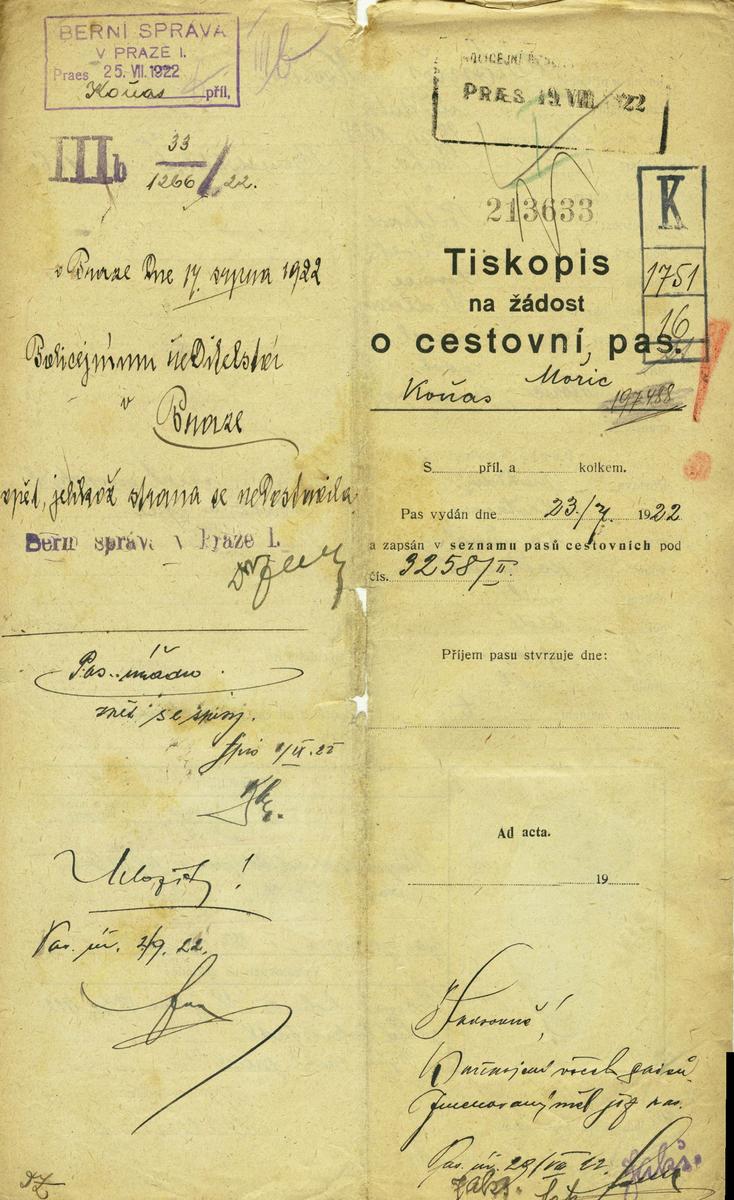 BERNÍ SPRÁVA
V PRAZE I.
Praes 25. VII. 1922
příl.
IIIb 33
1266 / 22.
v Praze dne 17. srpna 1922
Policejnímu ředitelství
v
Praze
zpět, jelikož strana se nedostavila
Berní správa v Praze I.
Pas. úřadu
zpět se spisy.
Uložiti!
Pas. úř. 2/9. 22.
PRAES 19. VIII. 1922
213633
K
1751
16
Tiskopis
na žádost
o cestovní pas.
Moric
197488
S příl. a kolkem.
Pas vydán dne 23./7. 1922
a zapsán v seznamu pasů cestovních pod
čís. 3258/II.
Příjem pasu stvrzuje dne:
Ad acta.
19
všech
Jmenovaný měl již pas.
Pas. úř. 29/VIII 22.